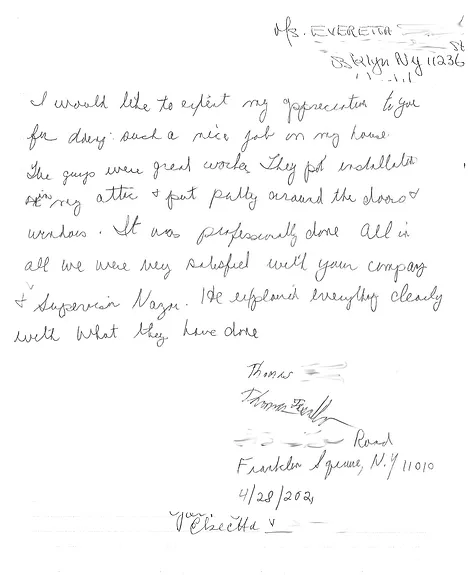 Ms. EVERETTA
St
Bklyn Ny 11236
I would like to expert my appreciation to you
for doing such a nice job in my house.
The guys were great worker They put installation
in my attic & put putty around the doors &
windows. It was professionally done All in
all we were very satisfied with your company
& Supervisor Nazir. He explained everything clearly
with what they have done
Thomas
Thomas
Road
Franklin Square, N.Y 11010
4/28/2021